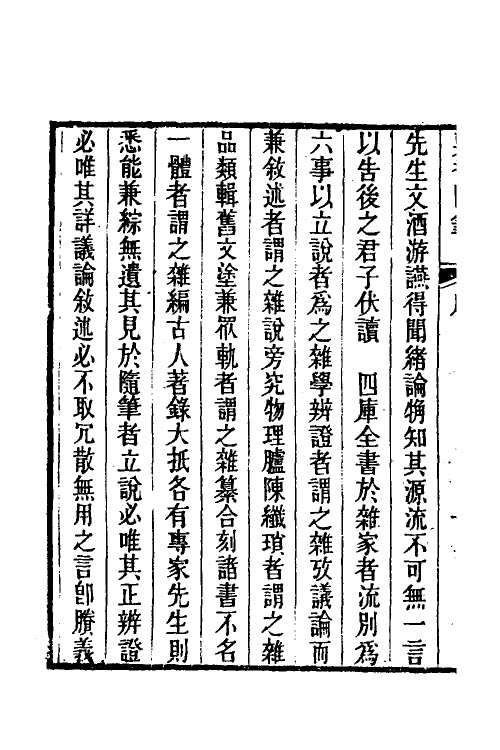 先生文酒游讌得聞緒論稍知其源流不可無一言
以告後之君子伏讀　四庫全書於雜家者流別爲
六事以立說者爲之雜學辨證者謂之雜攷議論而
兼敘述者謂之雜說旁究物理臚陳纖瑣者謂之雜
品類輯舊文塗兼眾軌者謂之雜纂合刻諸書不名
一體者謂之雜編古人著錄大抵各有專家先生則
悉能兼綜無遺其見於隨筆者立說必唯其正辨證
必唯其詳議論敘述必不取冗散無用之言卽賸義